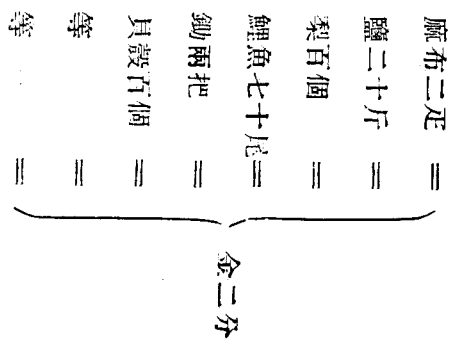 麻布二疋 =
鹽二十斤 =
梨百個 =
鯉魚七十尾=
鋤兩把 =
貝殼百個 =
等 =
等 =
金二分